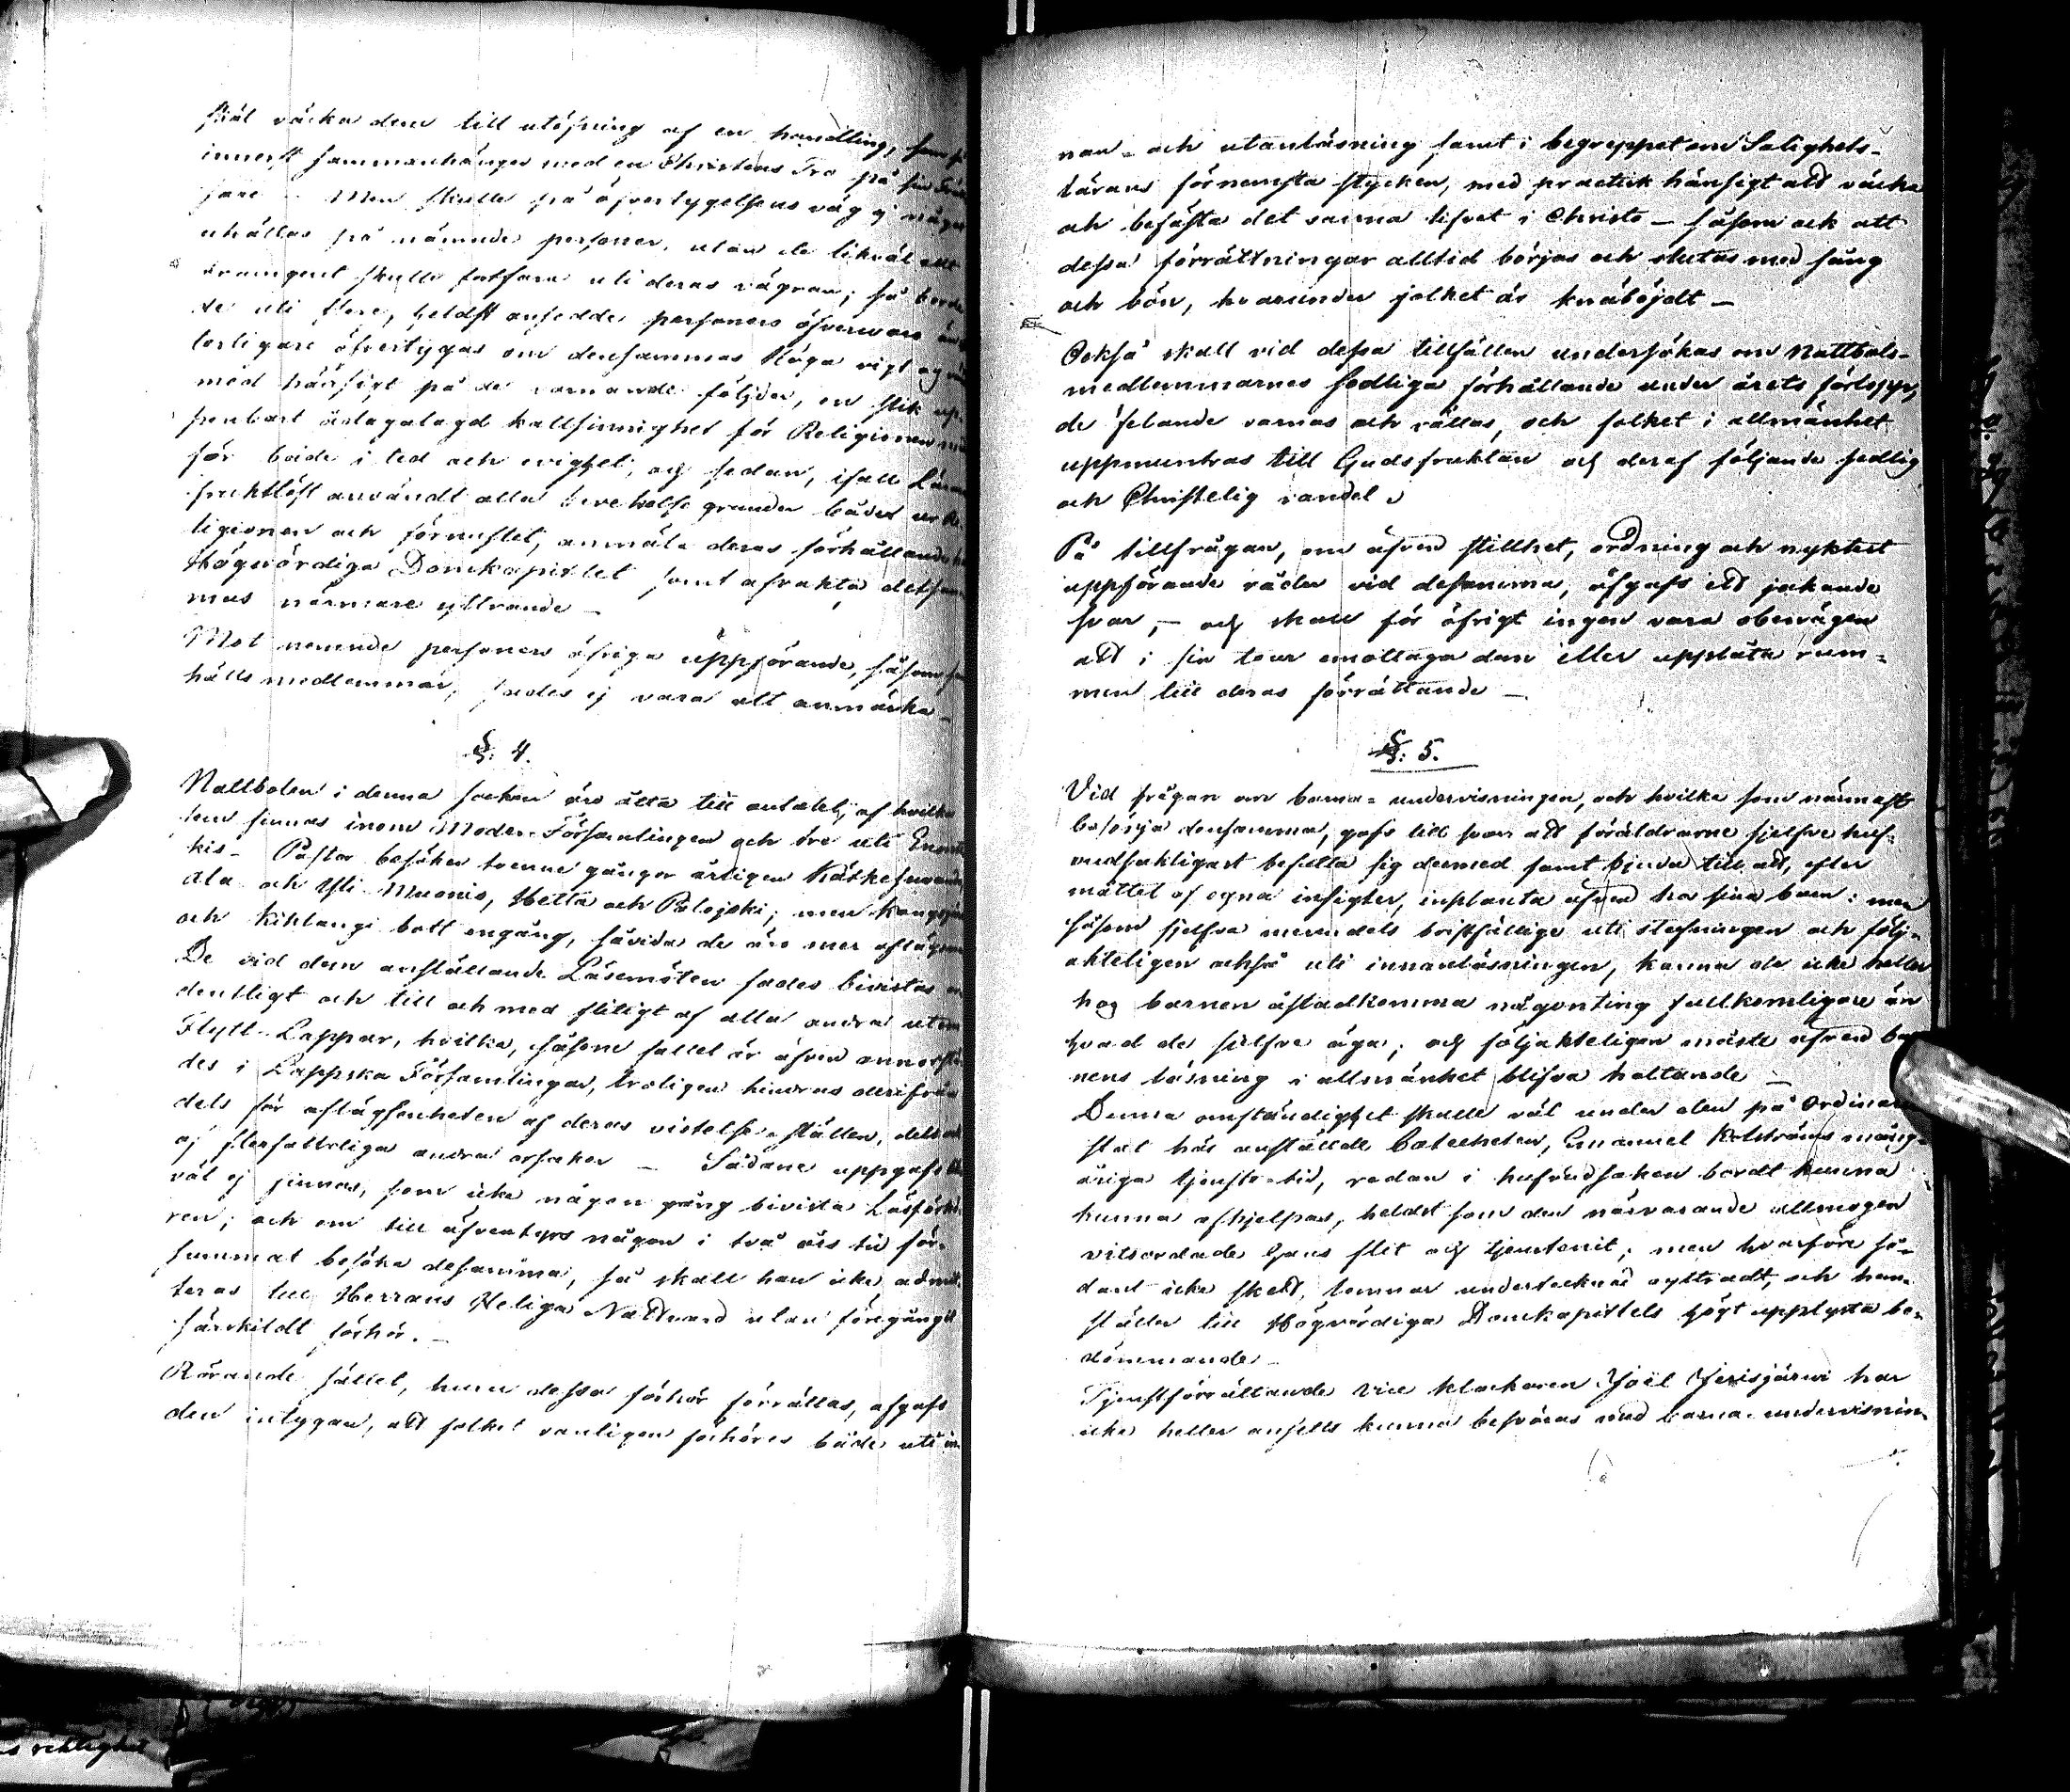 själ väcka dem till utöfning af en handling, som på
innerst sammanhänger med en Christens Tro på sin Fräl
sare – Men skulle på öfvertygelsens väg ej något
uhällas på nämnde personer, utan de likväl allt
framgent skulle fortfara uti deras vägran; så borde
de uti flere, heldst ansedde personers öfvervaro än
terligare öfvertygas om densammas höga vigt och
med hänsigt på de varnande följder, en slik up-
penbart ådagalagd kallsinnighet för Religionen
för både i tid och evighet, och sedan, ifall Läraren
fruktlöst användt alla bevekelse grunder både ur Re-
ligionen och förnuftet, anmäla deras förhållande hos
Högvördiga Domkapitlet samt afvakta detsam-
mas närmare yttrande –
Mot nemnde personers öfriga uppförande, såsom sam
hälls medlemmar, sades ej vara att anmärka –
§. 4.
Nattbolen i denna socken äro åtta till antalet, af hvilka
fem finnas inom Moder-Församlingen och tre uti Enonte
kis – Pastor besöker tvenne gånger årligen Kätkesuando
Ala och Yli-Muonio, Hetta och Palojoki; men Kangosj
och Kihlangi blott engång, såvida de äro mer aflägsna
De vid dem anställande Läsemöten sades bivistas or
dentligt och till och med flitigt af alla andra utom
Flytt-Lappar, hvilka, såsom fallet är äfven annorstä
des i Lappska Församlingar, troligen hindras derifrån
dels för aflägsenheten af deras vistelse-ställen, dels
af flerfalldiga andra orsaker – Sådane uppgafs
väl ej finnas, som icke någon gång bivista Läsförhö
ren; och om till äfventyrs någon i två års tid för-
summat besöka desamma, så skall han icke admit-
teras till Herrans Heliga Nattvard utan föregånget
särskildt förhör. –
Rörande sättet, huru dessa förhör förrättas, afgafs
den intygan, att folket vanligen förhöres både uti in-
nan- och utanläsning samt i begreppet om Salighets-
lärans förnemsta stycken, med practisk hänsigt att väcka
och befästa det sanna lifvet i Christo – såsom ock att
dessa förrättningar alltid börjas och slutas med sång
och bön, hvarunder folket är knäböjdt –
Också skall vid dessa tillfällen undersökas om Nattbols-
medlemmarnes sedliga förhållande under årets förlopp,
de felande varnas och rättas, och folket i allmänhet
uppmuntras till Gudsfruktan och deraf följande sedlig
och Christelig vandel.
På tillfrågan, om äfven stillhet, ordning och nyktert
uppförande råder vid desamma, afgafs ett jakande
svar, – och skall för öfrigt ingen vara obenägen
att i sin tour emottaga dem eller upplåta rum-
men till deras förrättande –
§. 5.
Vid frågan om barna-undervisningen, och hvilka som närmast
besörja densamma, gafs till svar att föräldrarne sjelfve huf-
vudsakligast befatta sig dermed samt bjuda till att, efter
måttet af egna insigter, inplanta äfven hos sina barn: men
såsom sjelfva merendels bristfällige uti stafningen och följ-
akteligen också uti innanläsningen, kunna de icke heller
hos barnen åstadkomma någonting fullkomligare än
hvad de sjelfve äga; och följakteligen måste äfven bar
nens läsning i allmänhet blifva haltande –
Denna omständighet skulle väl under den på Ordinarie
stat här anställde Catecheten, Emanuel Kolströms mång-
åriga tjenste-tid, redan i hufvudsaken bordt kunna
kunna afhjelpas, heldst som den närvarande allmogen
vitsordade hans flit och tjenstenit; men hvarföre så-
dant icke skett, lemnar undertecknad oyttradt, och hem-
ställer till Högvördiga Domkapitlets högt upplysta be-
dömmande –
Tjenstförrättande Vice klockaren Joël Jerisjärvi har
icke heller ansetts kunna besväras med barna-undervisnin-